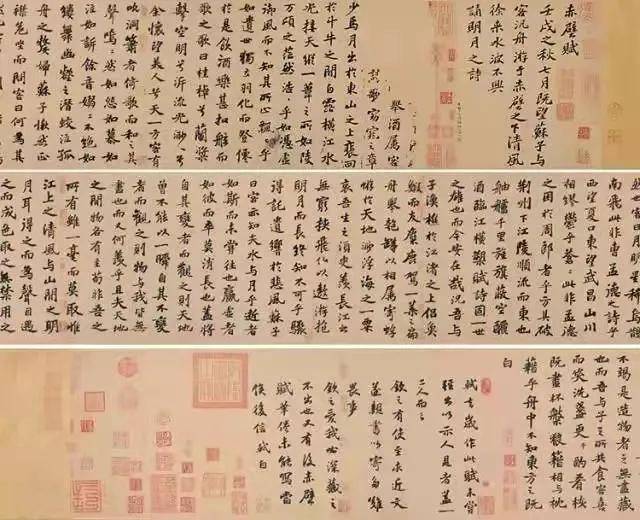 赤壁賦
壬戌之秋七月既望蘇子與
客汎舟游于赤壁之下清風
徐來水波不興
誦明月之詩
舉酒屬客
歌窈窕之章
少焉月出於東山之上裴回
於斗牛之間白露橫江水
光接天縱一葦之所如陵
萬頃之茫然浩浩乎如憑虛
御風而不知其所止飄飄乎
如遺世獨立羽化而登僊
於是飲酒樂甚扣舷而
歌之歌曰桂棹兮蘭槳
擊空明兮泝流光渺渺兮
余懷望美人兮天一方客有
吹洞簫者倚歌而和之其
聲嗚嗚然如怨如慕如
泣如訴餘音嫋嫋不絕如
縷舞幽壑之潛蛟泣孤
舟之嫠婦蘇子愀然正
襟危坐而問客曰何為其
然也客曰月明星稀烏鵲
南飛此非曹孟德之詩乎
西望夏口東望武昌山川
相繆鬱乎蒼蒼此非孟德
之困於周郎者乎方其破
荊州下江陵順流而東也
舳艫千里旌旗蔽空釃
酒臨江橫槊賦詩固一世
之雄也而今安在哉況吾與
子漁樵於江渚之上侶魚
鰕而友麋鹿駕一葉之扁
舟舉匏罇以相屬寄蜉
蝣於天地渺浮海之一粟
哀吾生之須臾羨長江之
無窮挾飛仙以遨遊抱
明月而長終知不可乎驟
得託遺響於悲風蘇子
曰客亦知夫水與月乎逝者
如斯而未嘗往也贏虛者
如彼而卒莫消長也蓋將
自其變者而觀之則天地
曾不能以一瞬自其不變
者而觀之則物與我皆無
盡也而又何羨乎且夫天地
之間物各有主苟非吾之
所有雖一毫而莫取惟
江上之清風與山間之明
月耳得之而為聲目遇
之而成色取之無禁用之
不竭是造物者之無盡藏
也而吾與子之所共食客喜
而笑洗盞更酌肴核
既盡杯盤狼藉相與枕
藉乎舟中不知東方之既
白
軾去歲作此賦未嘗
輕出以示人見者蓋一
二人而已
欽之有使至求近文
遂親書以寄多難
畏事
欽之愛我必深藏之
不出也又有後赤壁
賦筆倦未能寫當
俟後信軾白